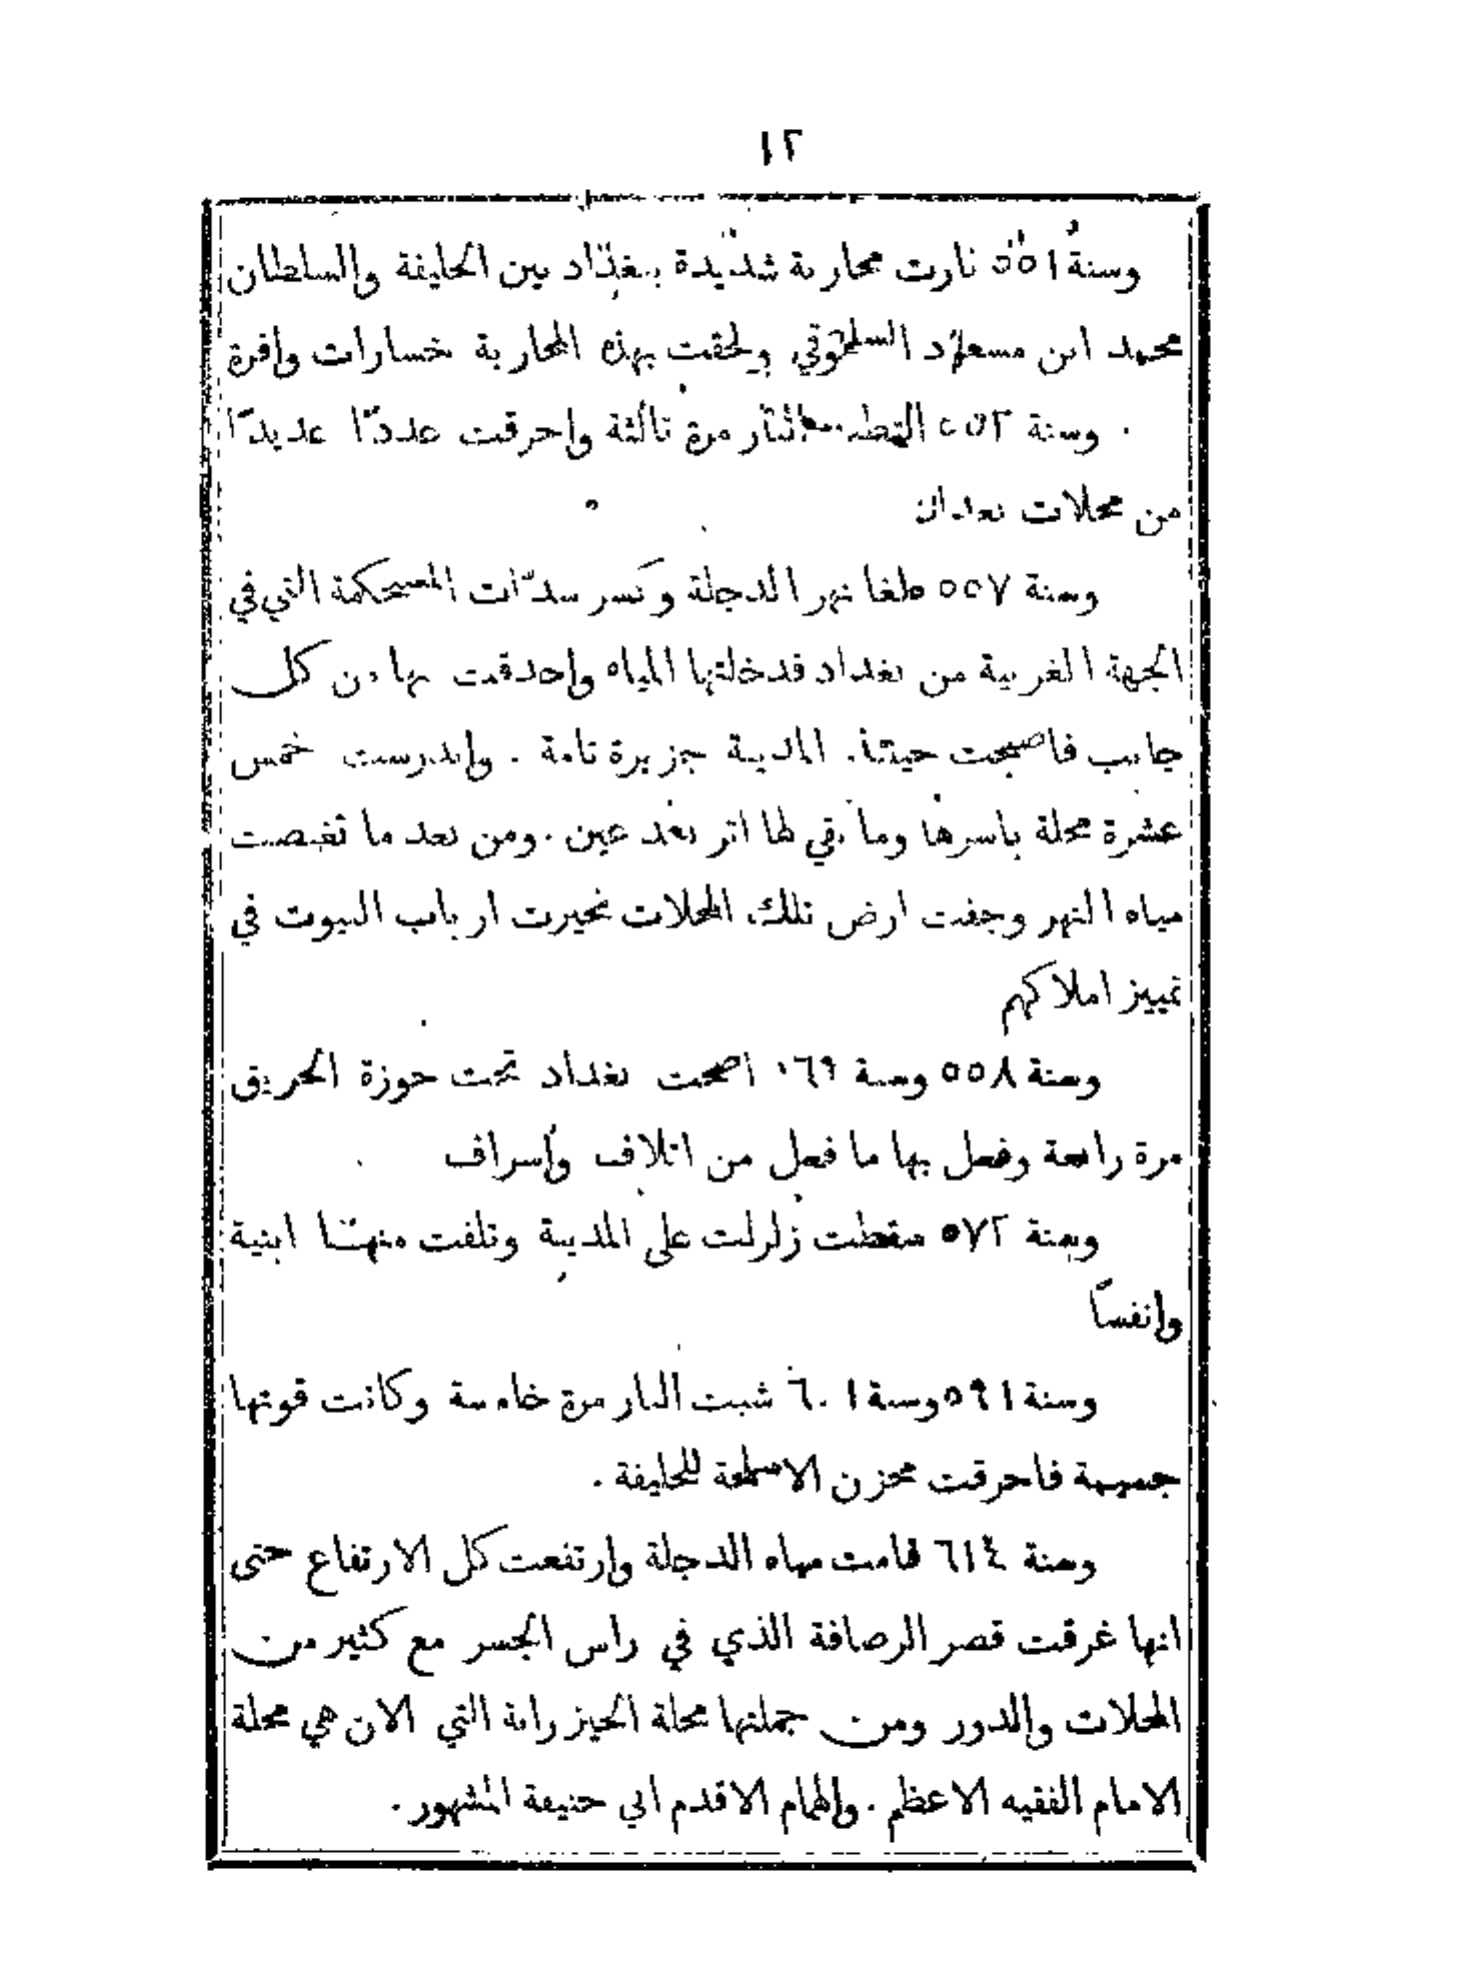 ١٢
وسنة ٥٥١ ثارت محاربة شديدة ببغداد بين الخليفة والسلطان
محمد ابن مسعود السلجوقي ولحقت بهذه المحاربة خسارات وافرة
وسنة ٥٥٢ التهطت النار مرة ثالثة واحرقت عددًا عديدًا
من محلات بغداد
وسنة ٥٥٧ طغا نهر الدجلة وكسر سدّات المستحكمة التي في
الجهة الغربية من بغداد فدخلتها المياه واحدقت بها من كل
جانب فاصبحت حينئذ المدينة جزيرة تامة . واندرست خمس
عشرة محلة باسرها وما بقي لها اثر بعد عين . ومن بعد ما تغيضت
مياه النهر وجفت ارض تلك المحلات تحيرت ارباب البيوت في
تمييز املاكهم
وسنة ٥٥٨ وسنة ٥٦٩ اصبحت بغداد تحت حوزة الحريق
مرة رابعة وفعل بها ما فعل من اتلاف واسراف
وسنة ٥٧٢ سقطت زلزلت على المدينة وتلفت منها ابنية
وانفسًا
وسنة ٥٩١ وسنة ٦٠١ شبت النار مرة خامسة وكانت قوتها
جسيمة فاحرقت مخزن الاسلحة للخليفة .
وسنة ٦١٤ قامت مياه الدجلة وارتفعت كل الارتفاع حتى
انها غرقت قصر الرصافة الذي في راس الجسر مع كثير من
المحلات والدور ومن جملتها محلة الخيزرانة التي الان هي محلة
الامام الفقيه الاعظم . والهمام الاقدم ابي حنيفة المشهور .